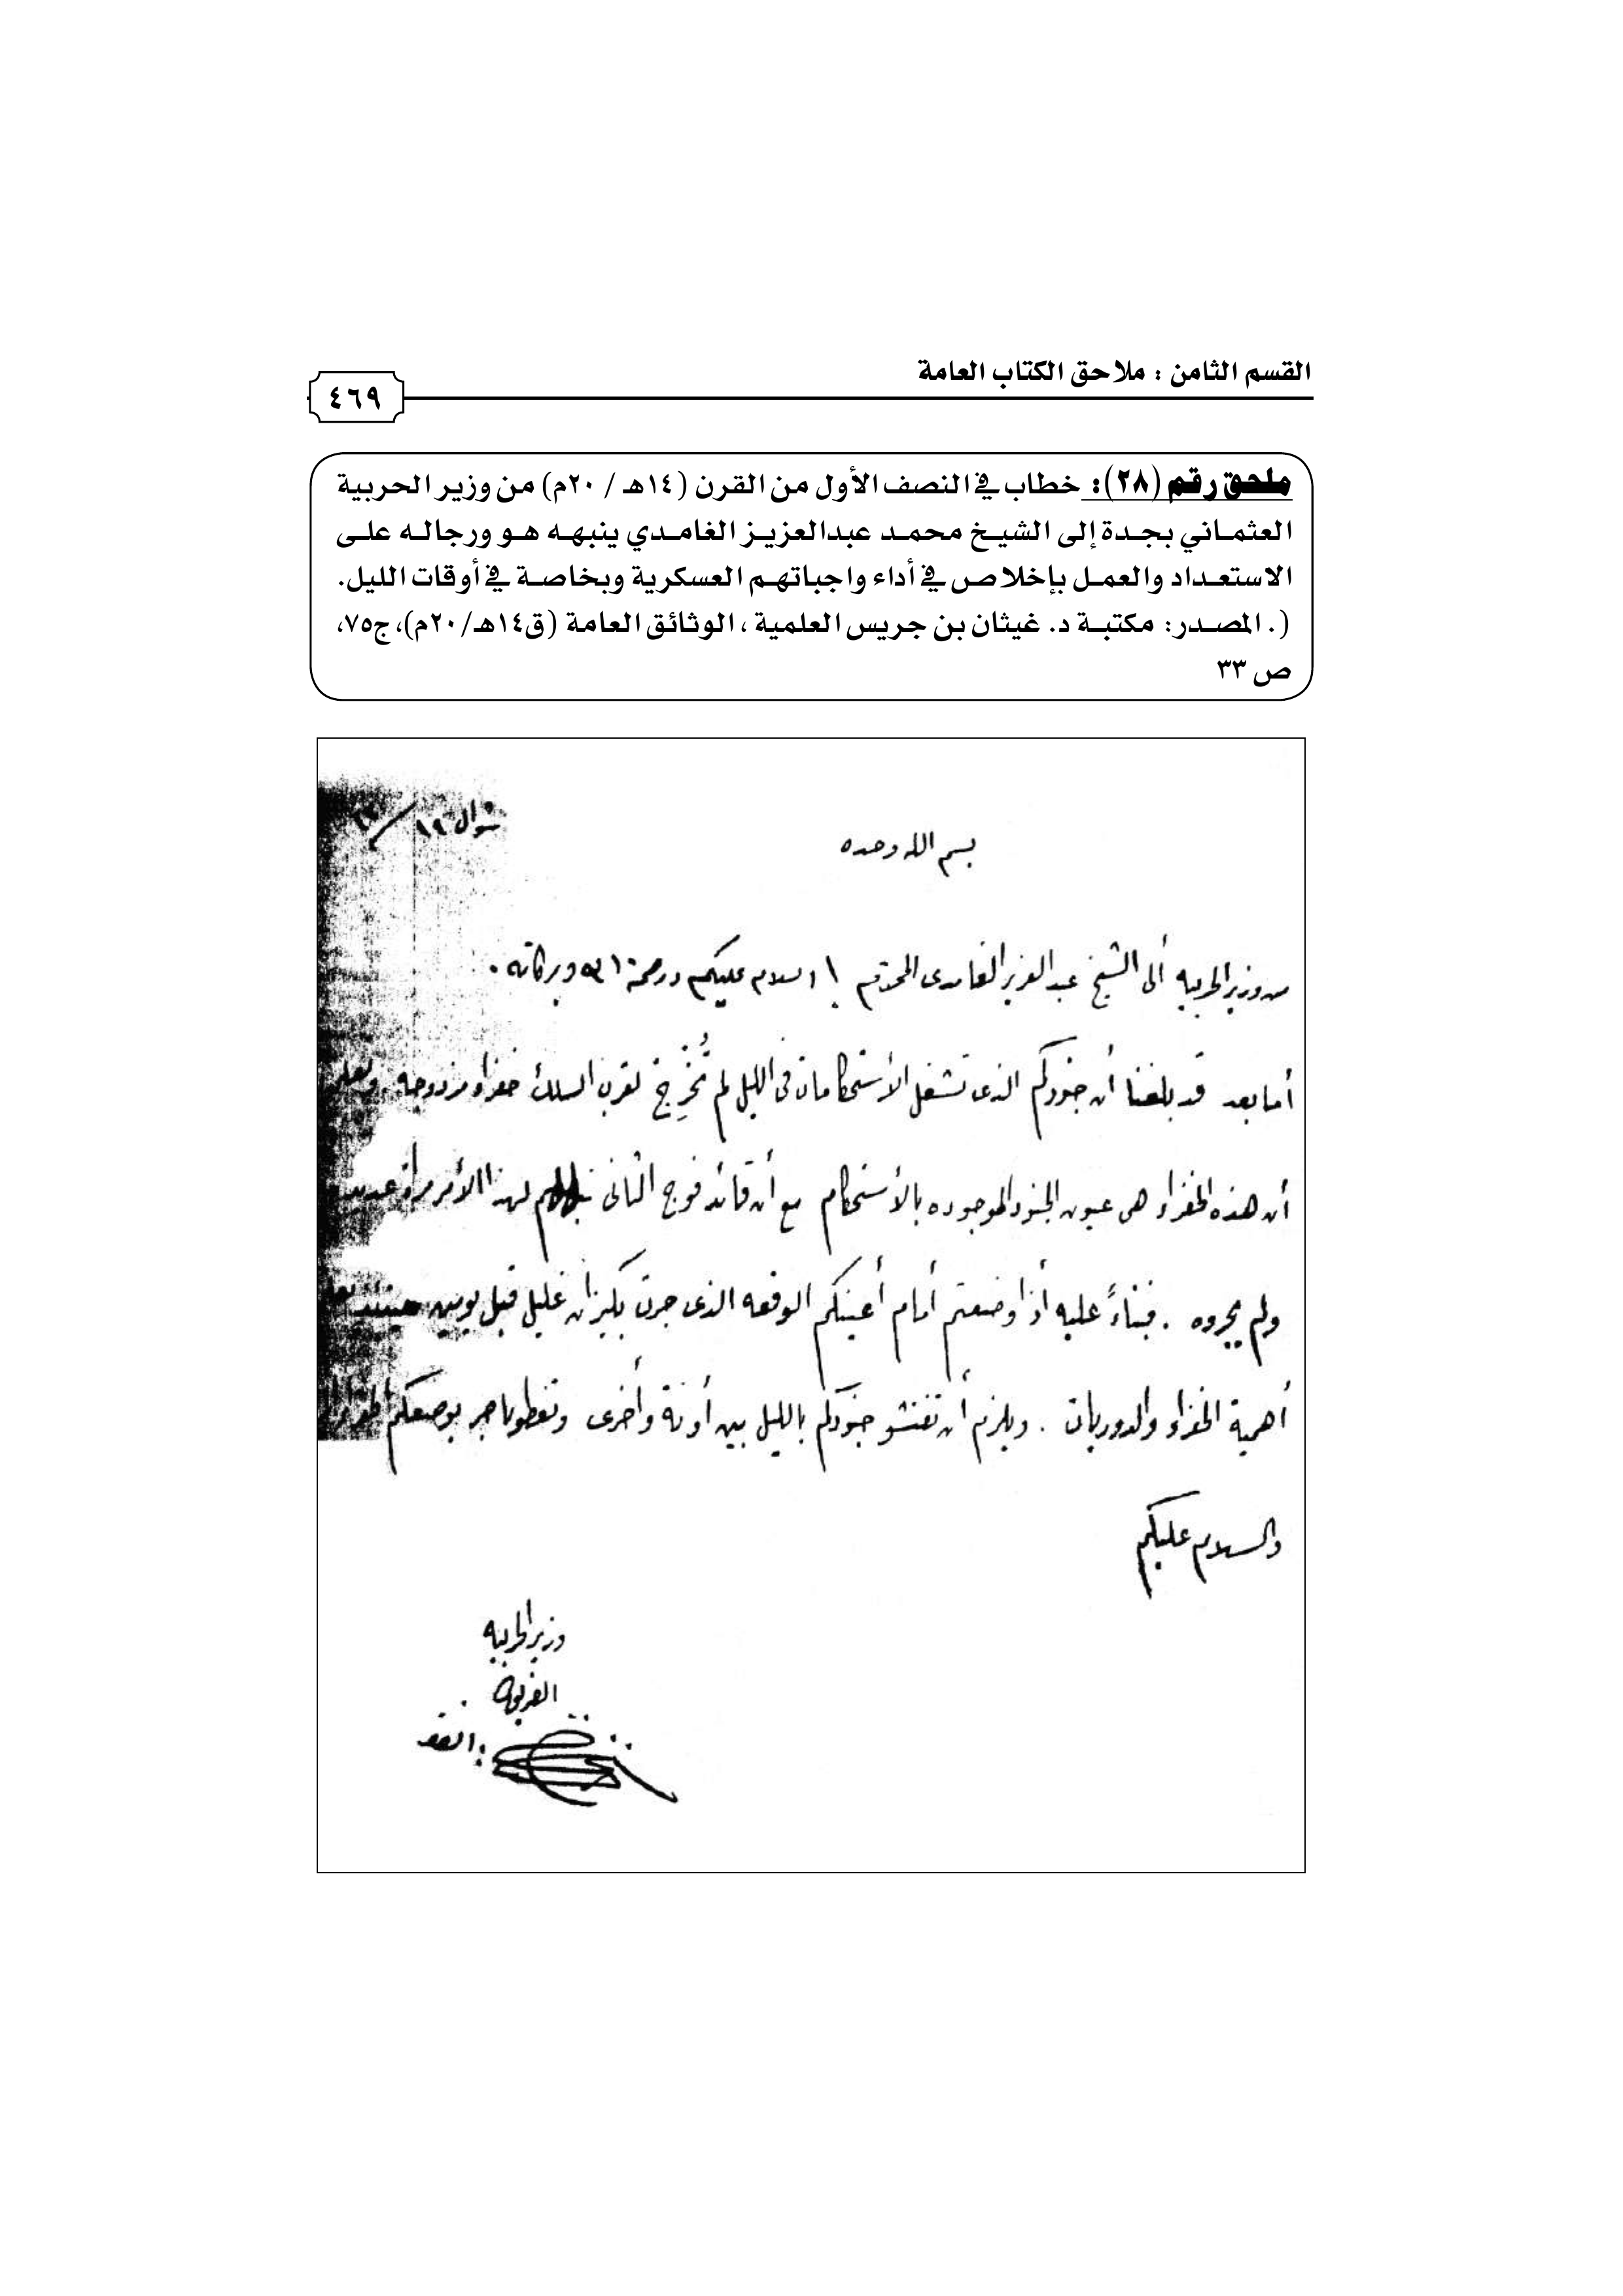 القسم الثامن : ملاحق الكتاب العامة
٤٦٩
ملحق رقم (٢٨): خطاب في النصف الأول من القرن (١٤هـ / ٢٠م) من وزير الحربية
العثماني بجدة إلى الشيخ محمد عبدالعزيز الغامدي ينبهه هو ورجاله على
الاستعداد والعمل بإخلاص في أداء واجباتهم العسكرية وبخاصة في أوقات الليل.
(. المصدر: مكتبة د. غيثان بن جريس العلمية ، الوثائق العامة (ق١٤هـ/٢٠م)، ج٧٥،
ص ٣٣
شوال ١٩
بسم الله وحده
من وزير الحربيه ألى الشيخ عبد العزيز الغامدى المحترم ! السلام عليكم ورحمة الله وبركاته .
أما بعد قد بلغنا أن جنودكم الذى تشغل الأستحكامات فى الليل لم تُخْرِجْ لقرب السلك خفراء مزدوجه
أن هذه الخفراء هى عيون الجنود الموجوده بالأستحكام مع أن قائد فوج الثانى لهذا الأمر مراة عديده
ولم يجروه . فبناءً عليه أذا وضعتم أمام أعينكم الوقعه الذى جرت بكيزان غليل قبل يومين
أهمية الخفراء والدوريات . ويلزم أن تفتشو جنودكم بالليل بين أونة وأخرى وتعطونا خبر بوضعكم
والسلام عليكم
وزير الحربيه
الفريق